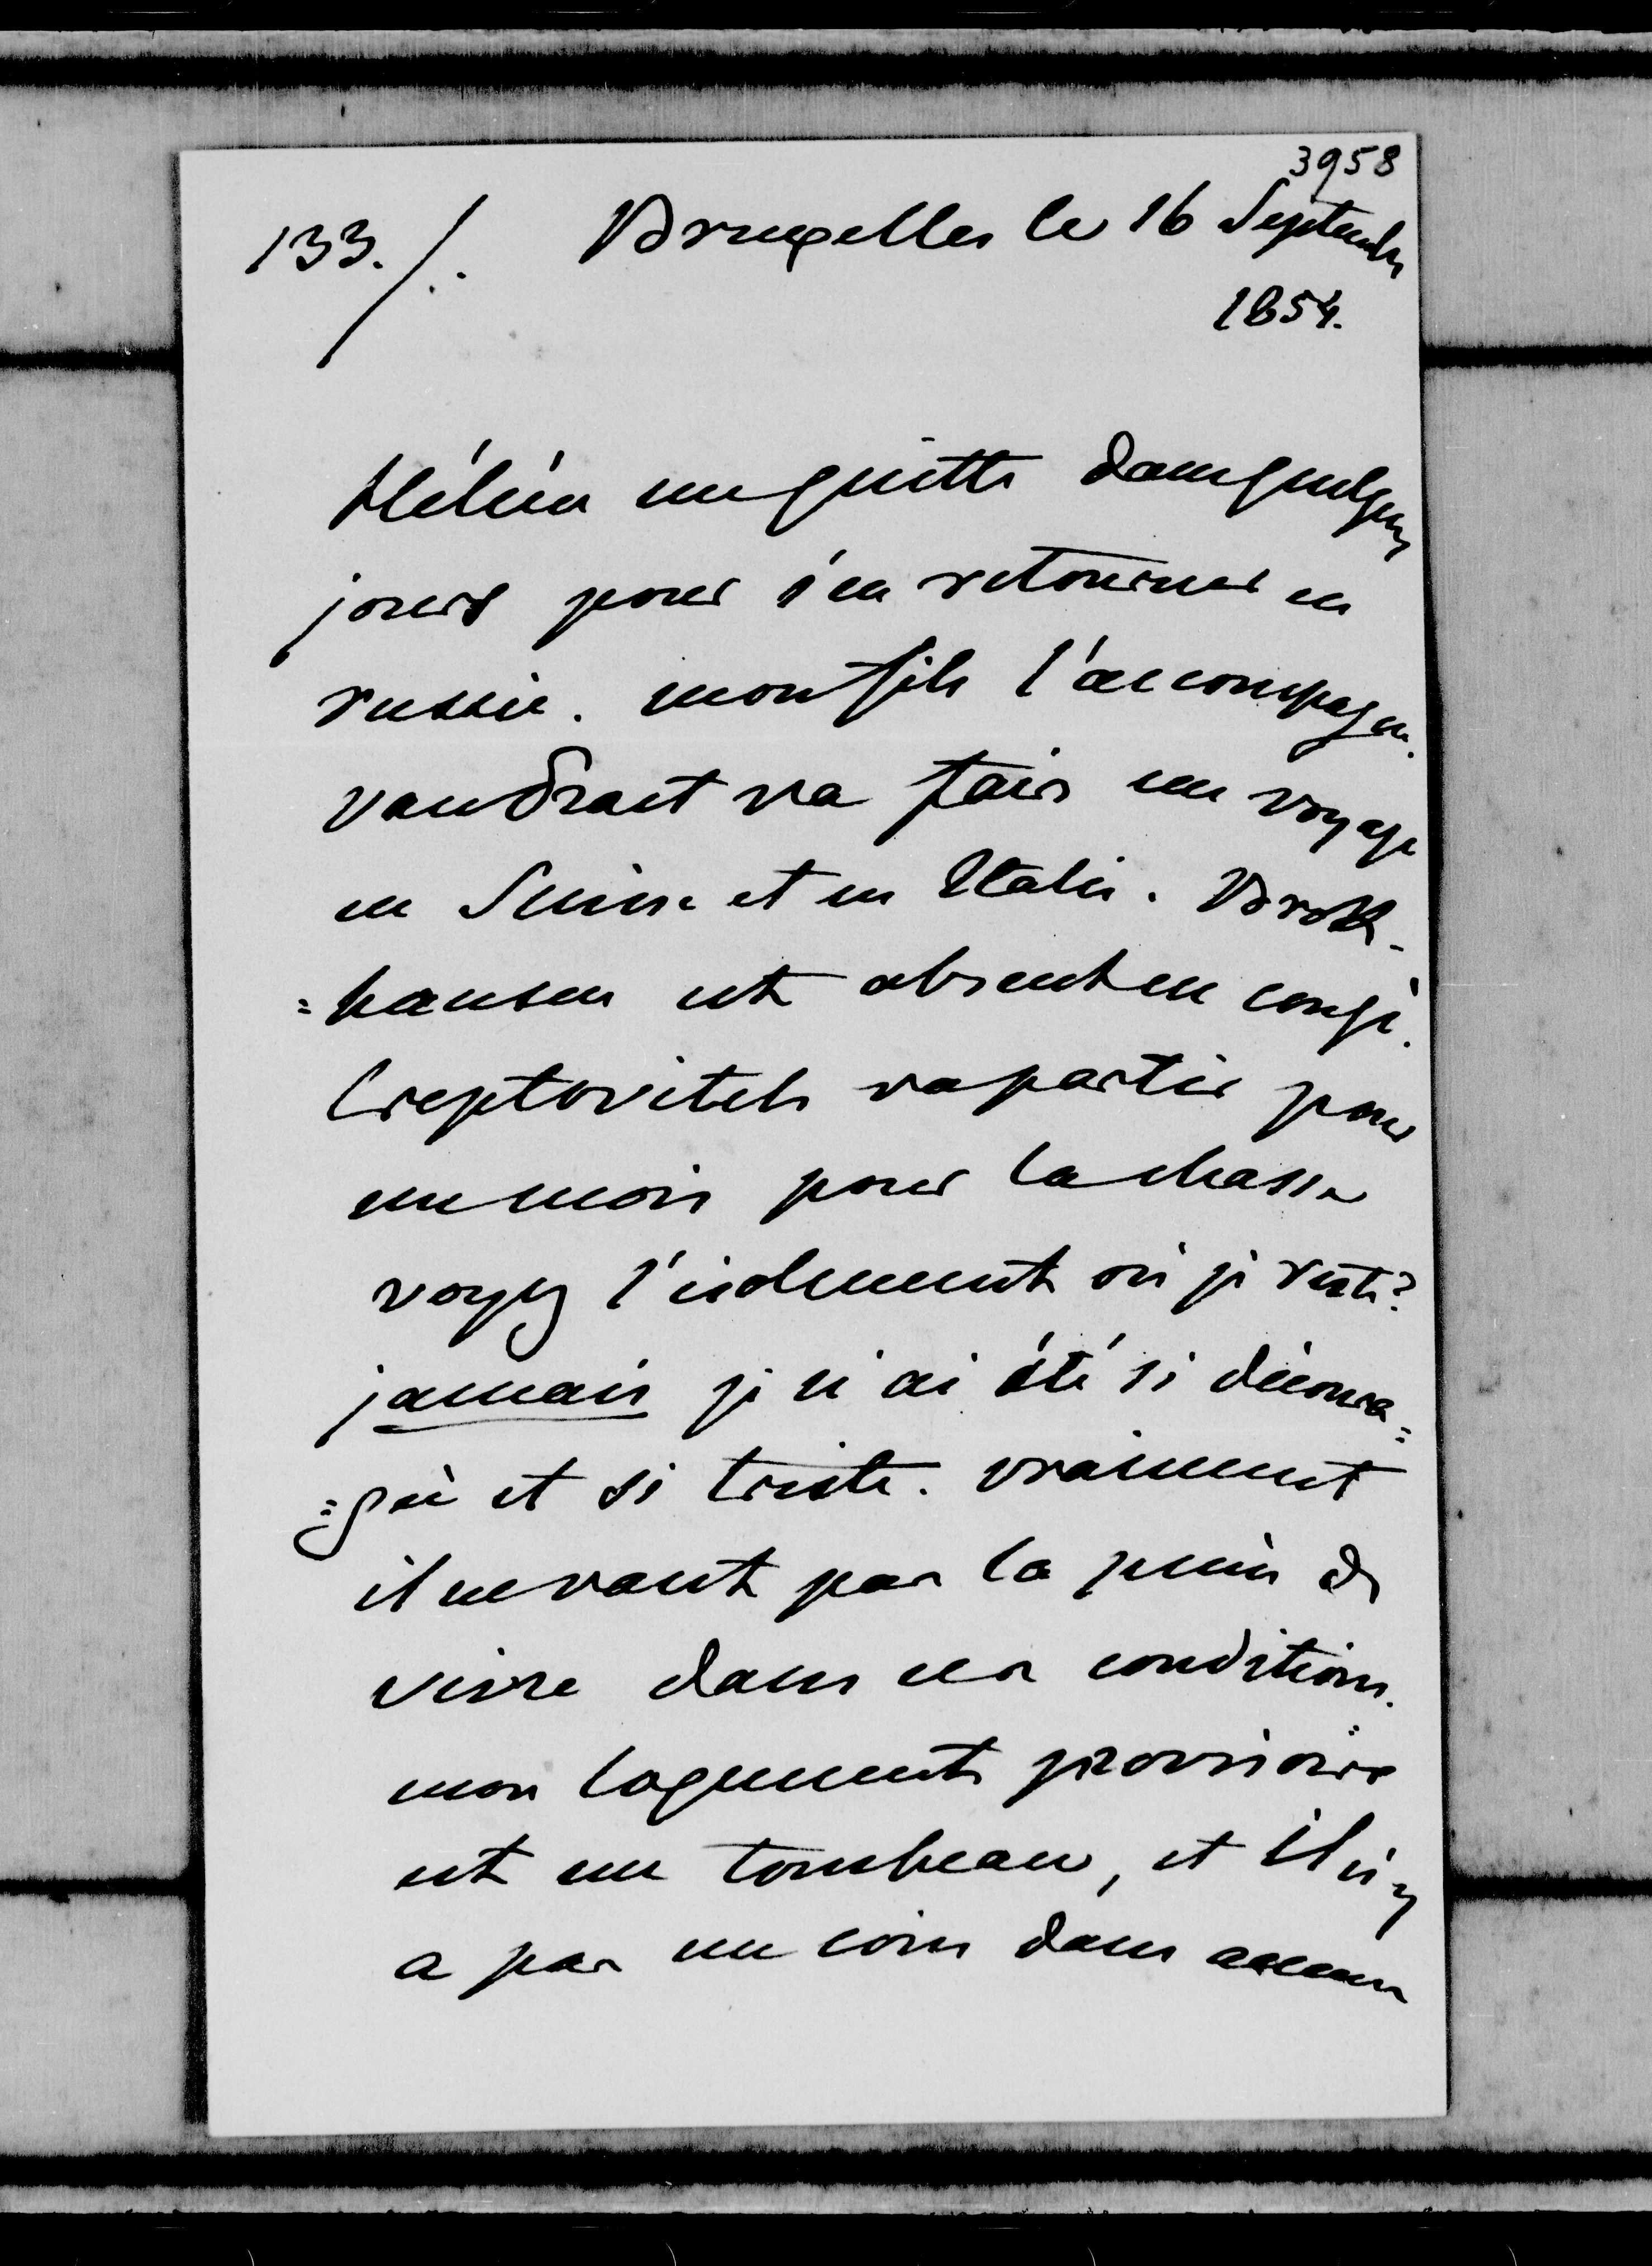 3958
133./. Bruxelles le 16 Septembre
1854.
Hélène me quitte dans quelques
jours pour s'en retourner en
russie. mon fils l'accompagne.
Vandraet va faire un voyage
en Suisse et en Italie. Brok-
=hausen est absent en congé.
Creptovitch va partir pour
un mois pour la chasse
voyez l'isolement où je reste?
jamais je n'ai été si découra=
=gée et si triste. vraiment
il ne vaut pas la peine de
vivre dans ces conditions.
mon logement provisoire
est un tombeau, et il n'y
a pas un coin dans aucun